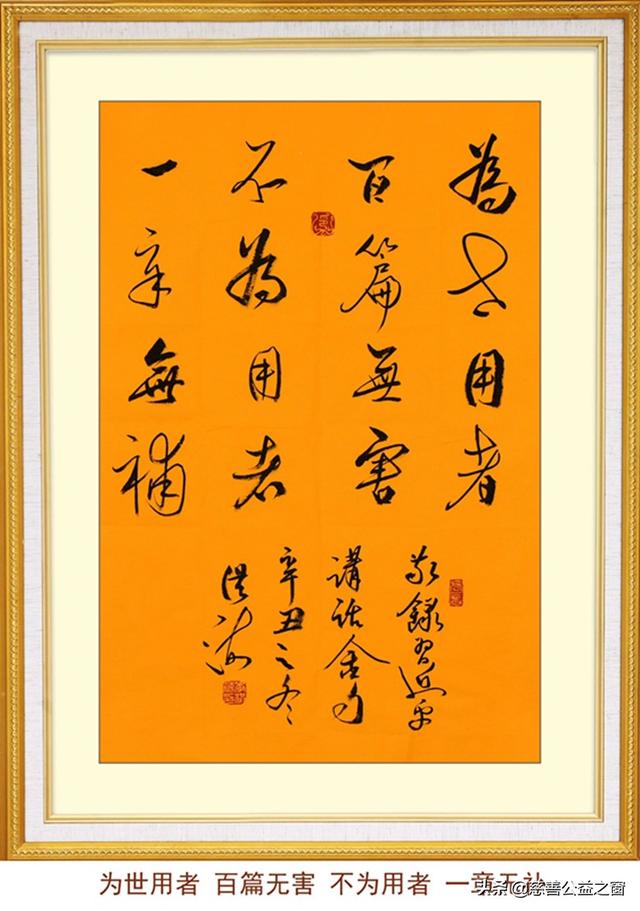 為世用者
百篇無害
不為用者
一章無補
敬錄習近平
講話金句
辛丑之冬
洪海
为世用者 百篇无害 不为用者 一章无补
头条@慈善公益之窗